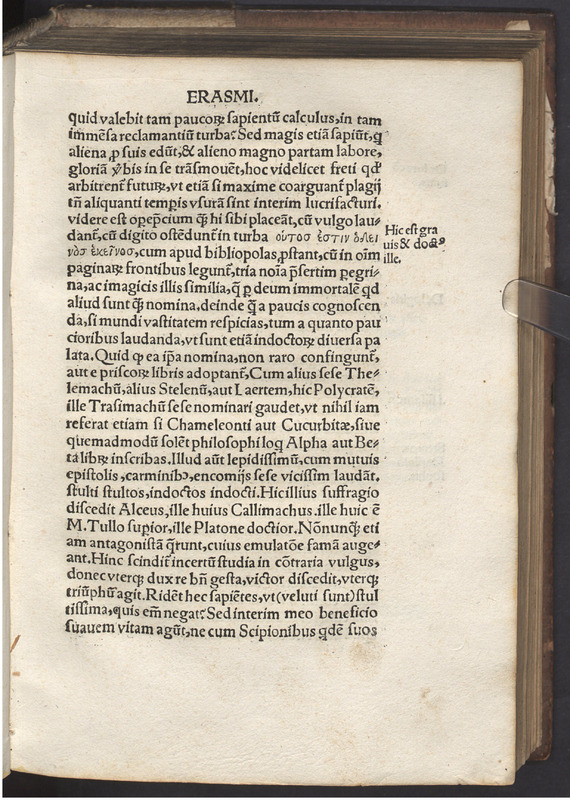 ERASMI.
quid valebit tam paucoꝝ sapientū calculus, in tam
immēsa reclamantiū turba? Sed magis etiā sapiūt, q̄
aliena ꝓ suis edūt, & alieno magno partam labore,
gloriā v̓bis in se trāsmouēt, hoc videlicet freti qđ
arbitrent̄ futuꝝ, vt etiā si maxime coarguant̄ plagij
tn̄ aliquanti tempis vsurā sint interim lucrifacturi.
videre est opep̄cium q̄ꝫ hi sibi placeāt, cū vulgo lau⸗
dant̄, cū digito ostēdunt̄ in turba οὑτοσ ἐστιν ὁ δει
νὸσ ἐκεῖνοσ, cum apud bibliopolas ꝓstant, cū in oīm
paginaꝝ frontibus legunt̄, tria noīa p̄sertim peregri⸗
na, ac imagicis illis similia, q̄ ꝑ deum immortalē qđ
aliud sunt q̄ꝫ nomina. deinde q̄ꝫ a paucis cognoscen
da, si mundi vastitatem respicias, tum a quanto pau
cioribus laudanda, vt sunt etiā indoctoꝝ diuersa pa
lata. Quid q̄ ea ip̄a nomina, non raro confingunt̄,
aut e priscoꝝ libris adoptant̄, Cum alius sese The⸗
lemachū, alius Stelenū, aut Laertem, hic Polycratē,
ille Trasimachū sese nominari gaudet, vt nihil iam
referat etiam si Chameleonti aut Cucurbitæ, siue
quemadmodū solēt philosophi loq̄ Alpha aut Be⸗
ta libꝝ inscribas. Illud aūt lepidissimū, cum mutuis
epistolis, carminibꝰ, encomijs sese vicissim laudāt.
stulti stultos, indoctos indocti. Hic illius suffragio
discedit Alceus, ille huius Callimachus. ille huic ē
M. Tullo supior, ille Platone doctior. Nōnunq̄ꝫ eti
am antagonistā q̄runt, cuius emulatōe famā auge⸗
ant. Hinc scindit̄ incertū studia in cōtraria vulgus,
donec vterqꝫ dux re bn̄ gesta, victor discedit, vterqꝫ
triūphū agit. Ridēt hec sapiētes, vt (veluti sunt) stul
tissima, quis em̄ negat? Sed interim meo beneficio
suauem vitam agūt, ne cum Scipionibus qdē suos
Hic est gra
uis & doctꝰ
ille.